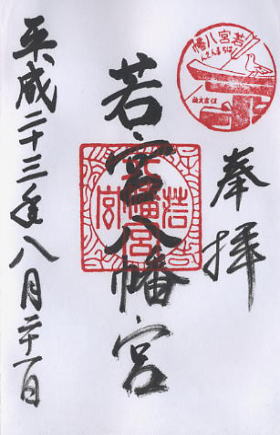 奉拝
若宮八幡
若宮八幡宮
若宮八幡宮
平成二十三年八月二十一日